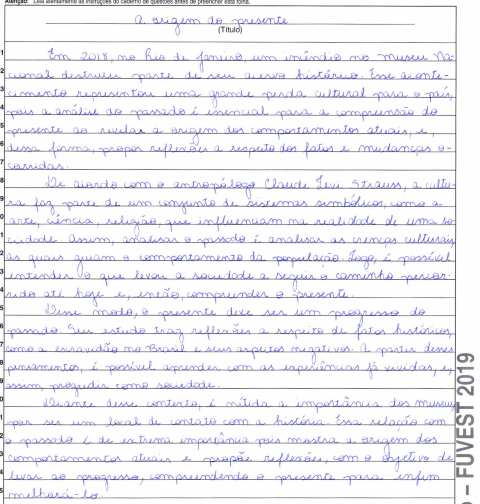 Atenção: Leia atentamente as instruções do caderno de questões antes de preencher esta folha.
A origem do presente
(Título)
1 Em 2018, no Rio de Janeiro, um incêndio no museu Na-
2 cional destruiu parte de seu acervo histórico. Esse aconte-
3 cimento representou uma grande perda cultural para o país,
4 pois a análise do passado é essencial para a compreensão do
5 presente ao revelar a origem dos comportamentos atuais, e,
6 dessa forma, propor reflexões a respeito dos fatos e mudanças o-
7 corridas.
8 De acordo com o antropólogo Claude Levi Strauss, a cultu-
9 ra faz parte de um conjunto de sistemas simbólicos, como a
0 arte, ciência, religião, que influenciam na realidade de uma so-
1 ciedade. Assim, analisar o passado é analisar as crenças culturais,
2 as quais guiam o comportamento da população. Logo, é possível
3 entender o que levou a sociedade a seguir o caminho percor-
4 rido até hoje e, então, compreender o presente.
5 Desse modo, o presente deve ser um progresso do
6 passado. Seu estudo traz reflexões a respeito de fatos históricos,
7 como a escravidão no Brasil e seus aspectos negativos. A partir desses
8 pensamentos, é possível aprender com as experiências já vividas, e,
9 assim, progredir como sociedade.
0 Diante desse contexto, é nítida a importância dos museus
1 por ser um local de contato com a história. Essa relação com
2 o passado é de extrema importância pois mostra a origem dos
3 comportamentos atuais e propõe reflexões, com o objetivo de
4 levar ao progresso, compreendendo o presente para enfim
5 melhorá-lo.
– FUVEST 2019